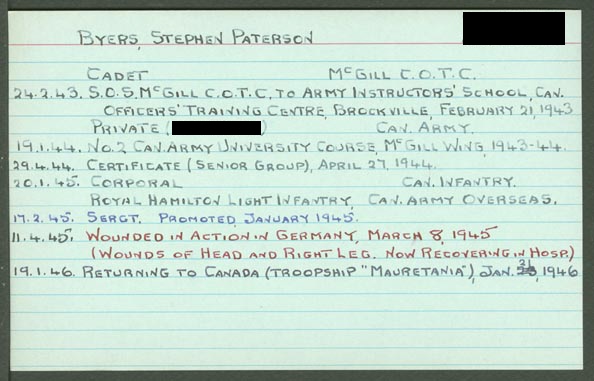 BYERS, STEPHEN PATERSON
CADET McGILL C.O.T.C.
24.2.43. S.O.S. McGILL C.O.T.C. TO ARMY INSTRUCTORS' SCHOOL, CAN.
OFFICERS' TRAINING CENTRE, BROCKVILLE, FEBRUARY 21, 1943
PRIVATE ( ) CAN. ARMY.
19.1.44. No. 2 CAN. ARMY UNIVERSITY COURSE, McGILL WING, 1943-44.
29.4.44. CERTIFICATE (SENIOR GROUP), APRIL 27, 1944.
20.1.45. CORPORAL CAN. INFANTRY.
ROYAL HAMILTON LIGHT INFANTRY, CAN. ARMY OVERSEAS.
17.2.45. SERGT. PROMOTED JANUARY 1945.
11.4.45. WOUNDED IN ACTION IN GERMANY, MARCH 8, 1945
(WOUNDS OF HEAD AND RIGHT LEG. NOW RECOVERING IN HOSP.)
19.1.46. RETURNING TO CANADA (TROOPSHIP "MAURETANIA"), JAN. 31, 1946